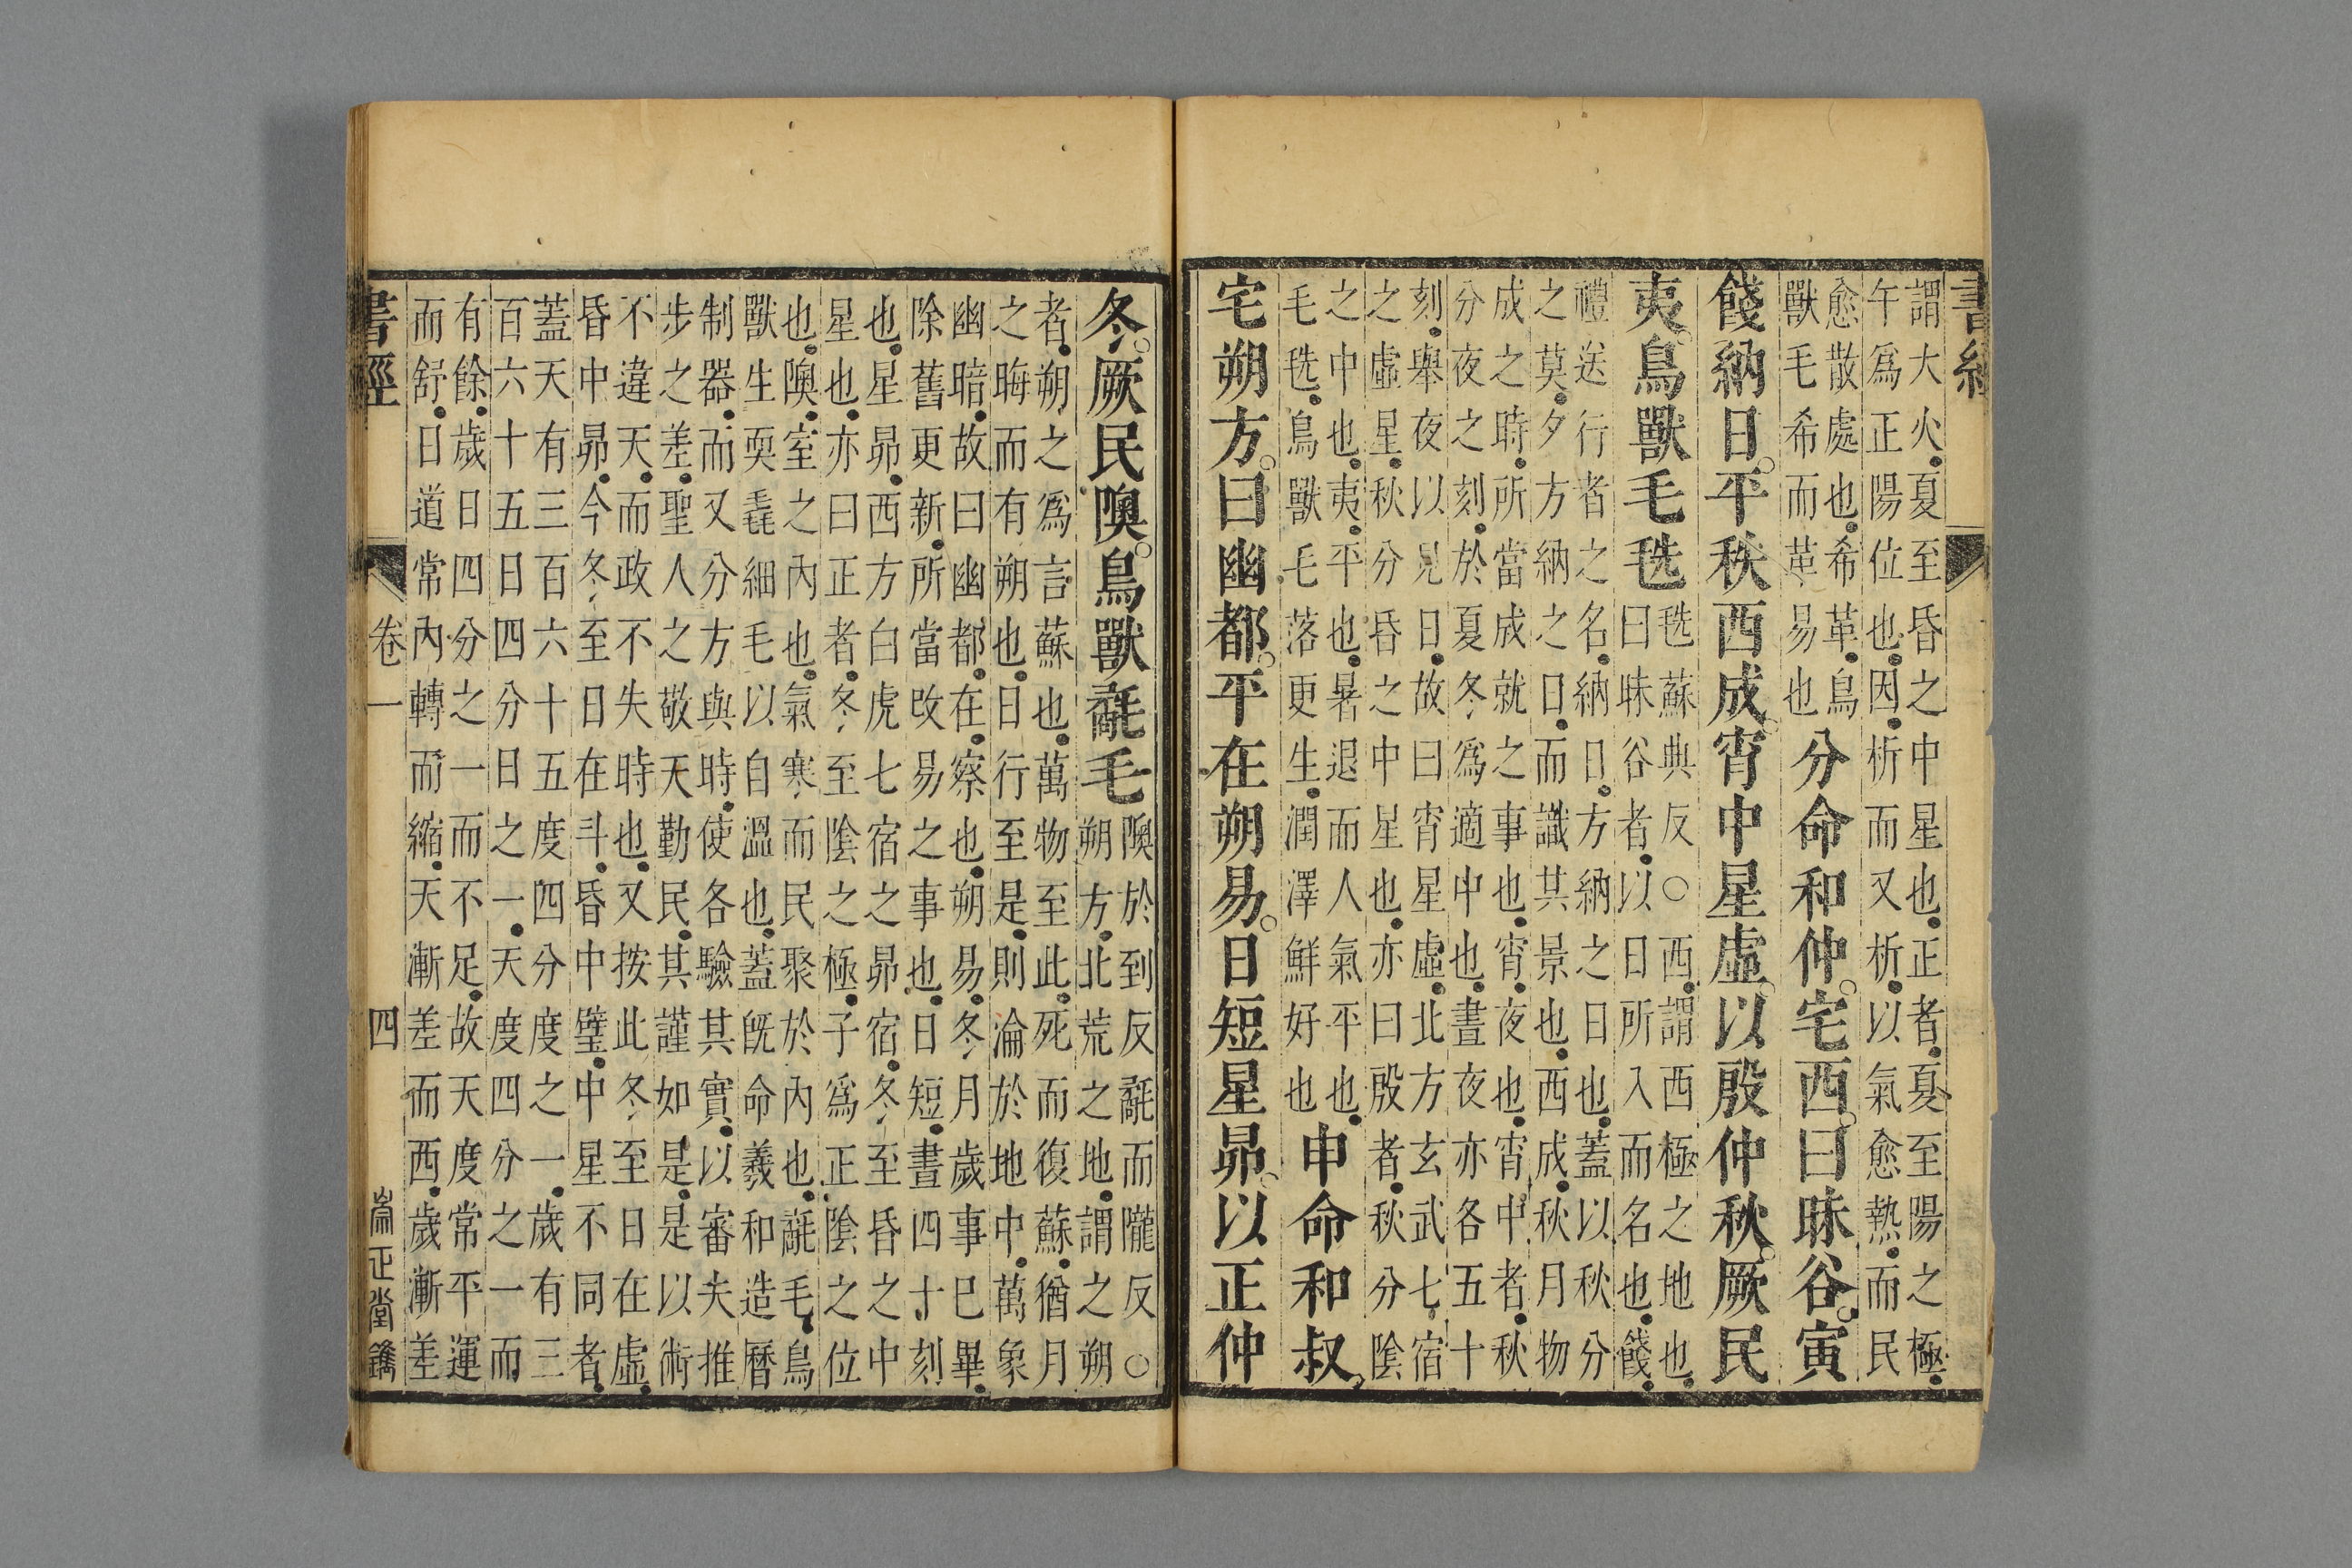 書經
謂大火夏至昏之中星也正者夏至陽之極
午爲正陽位也因析而又析以氣愈熱而民
愈散處也希革鳥
獸毛希而革易也
分命和仲宅西曰昧谷寅
餞納日平秩西成宵中星虛以殷仲秋厥民
夷鳥獸毛毨
毨蘇典反○西謂西極之地也
曰昧谷者以日所入而名也餞
禮送行者之名納日方納之日也蓋以秋分
之莫夕方納之日而識其景也西成秋月物
成之時所當成就之事也宵夜也宵中者秋
分夜之刻於夏冬爲適中也晝夜亦各五十
刻舉夜以見日故曰宵星虛北方玄武七宿
之虛星秋分昏之中星也亦曰殷者秋分陰
之中也夷平也暑退而人氣平也
毛毨鳥獸毛落更生潤澤鮮好也
申命和叔
宅朔方曰幽都平在朔易日短星昴以正仲
冬厥民隩鳥獸氄毛
隩於到反氄而隴反○
朔方北荒之地謂之朔
者朔之爲言蘇也萬物至此死而復蘇猶月
之晦而有朔也日行至是則淪於地中萬象
幽暗故曰幽都在察也朔易冬月歲事已畢
除舊更新所當改易之事也日短晝四十刻
也星昴西方白虎七宿之昴宿冬至昏之中
星也亦曰正者冬至陰之極子爲正陰之位
也隩室之內也氣寒而民聚於內也氄毛鳥
獸生耎毳細毛以自溫也蓋旣命羲和造曆
制器而又分方與時使各驗其實以審夫推
步之差聖人之敬天勤民其謹如是是以術
不違天而政不失時也又按此冬至日在虛
昏中昴今冬至日在斗昏中壁中星不同者
蓋天有三百六十五度四分度之一歲有三
百六十五日四分日之一天度四分之一而
有餘歲日四分之一而不足故天度常平運
而舒日道常內轉而縮天漸差而西歲漸差
書經
卷一
四
崙正堂鐫